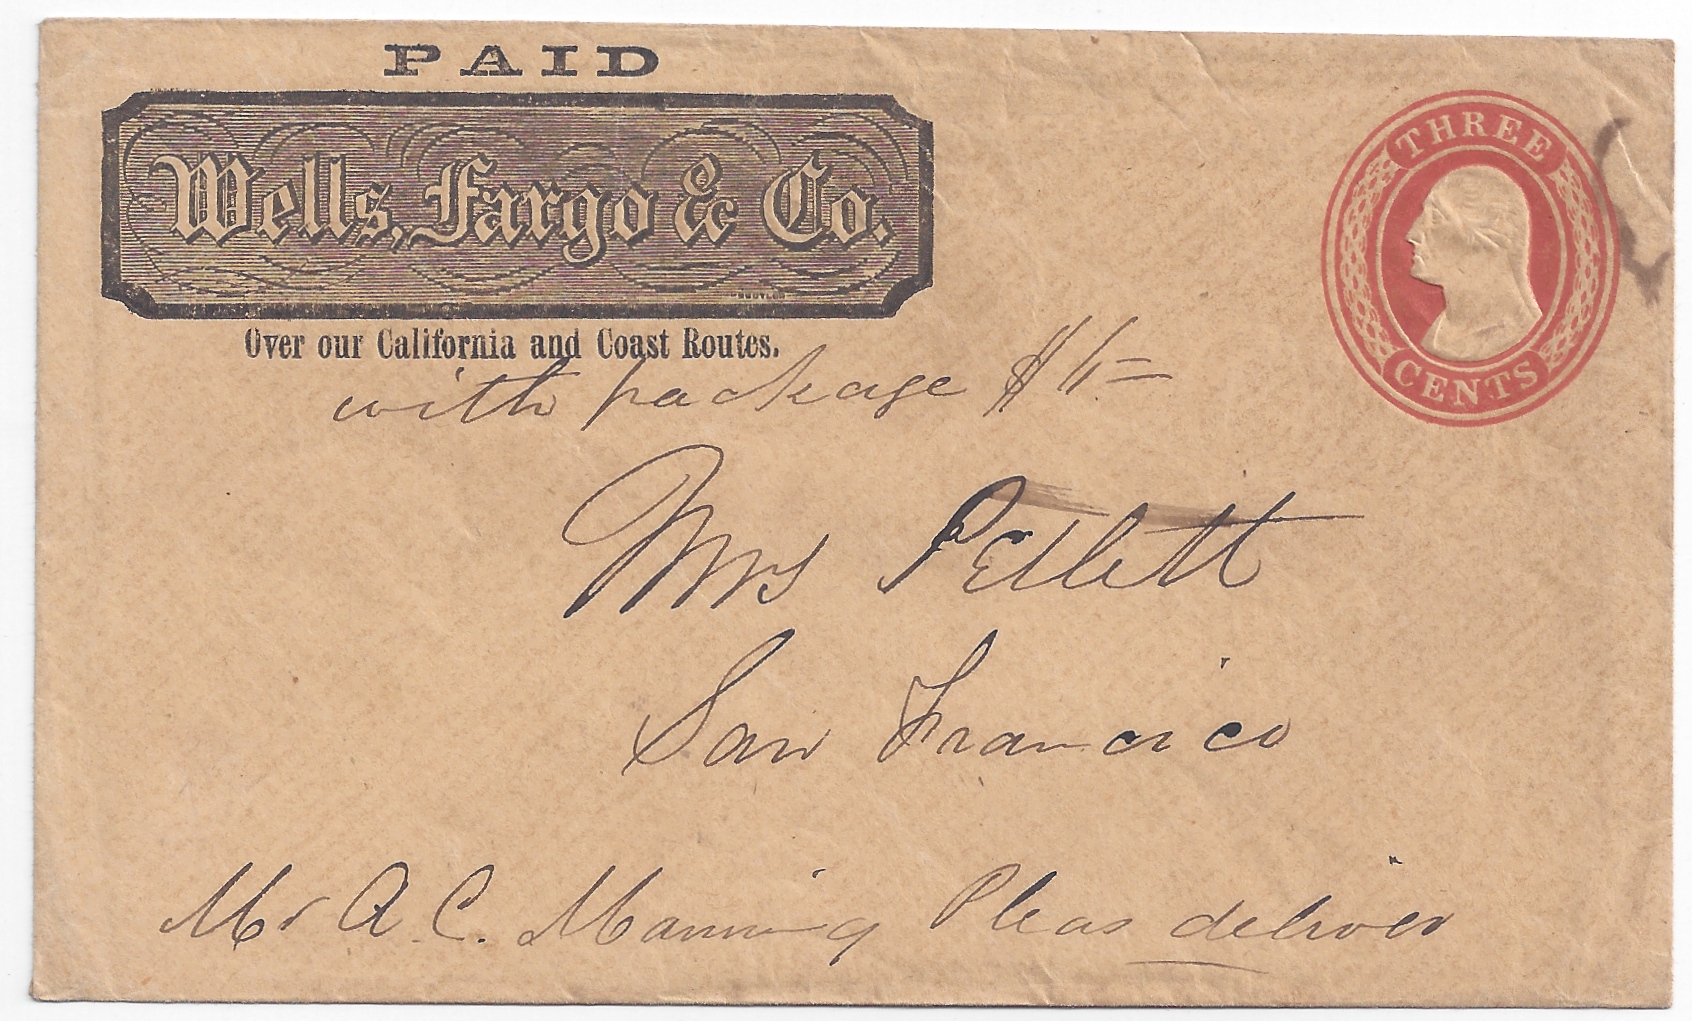 PAID
Wells, Fargo & Co.
Over our California and Coast Routes.
THREE
CENTS
with package $
Mrs Pellett
San Francico
Mr A. C. Manning Pleas deliver